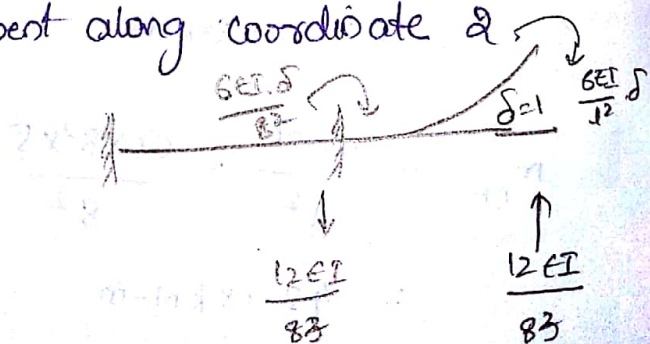 ent along coordinate 2
6EI.δ / 8²
δ=1
6EI / l² δ
12EI / 83
12EI / 83